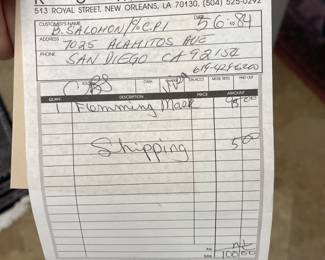 513 ROYAL STREET, NEW ORLEANS, LA 70130, (504) 525-0292
CUSTOMER'S NAME B. SALOMON / % C.P.I DATE 5 6 19 84
ADDRESS 7025 ALAMITOS AVE
PHONE SAN DIEGO CA 92154
619-424-6200
QUAN. DESCRIPTION PRICE AMOUNT
1 Flemming Mask 95 00
Shipping 5 00
TAX
100 00